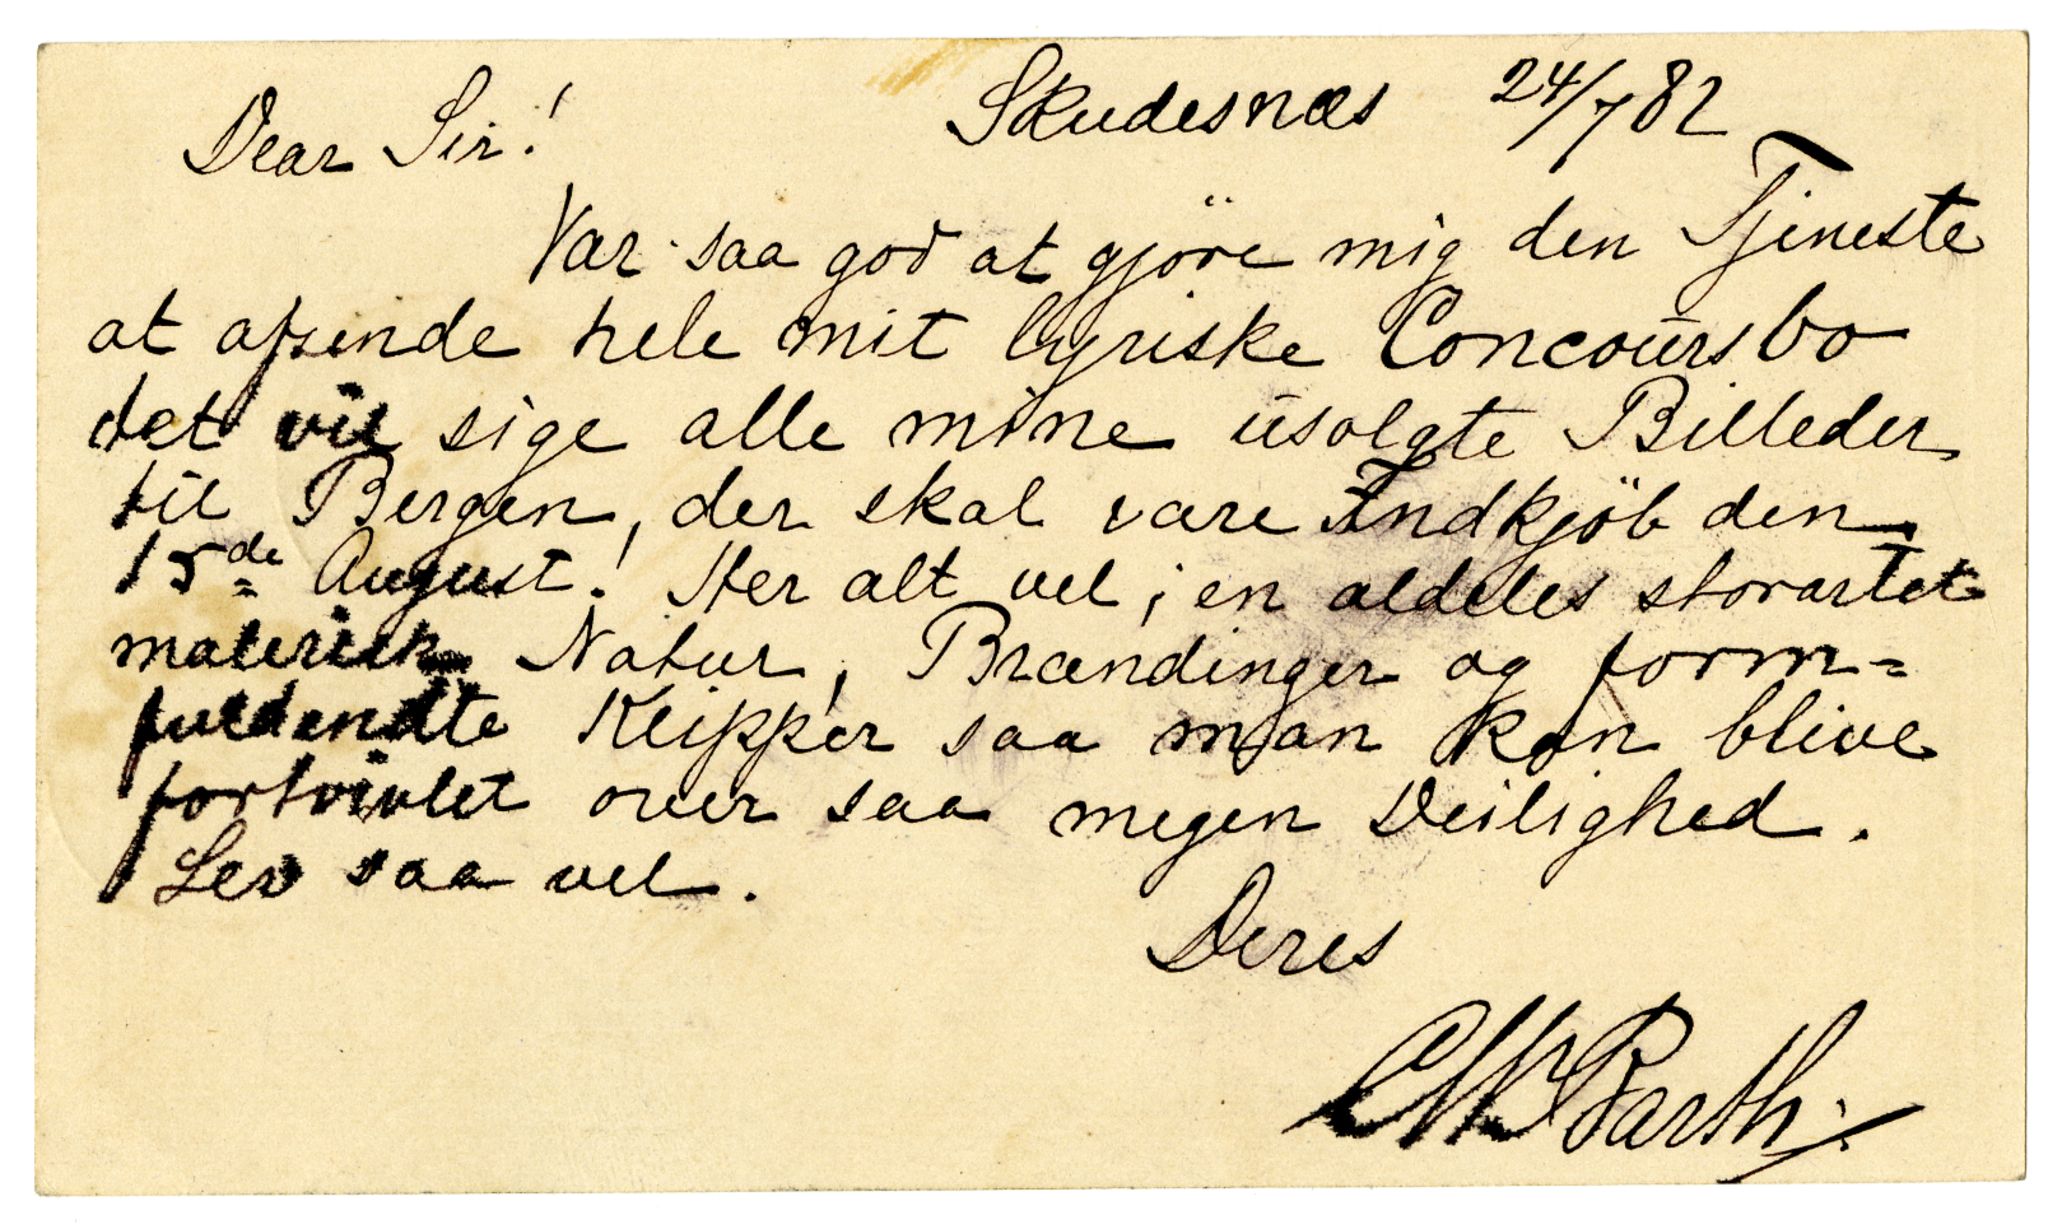 Skudesnæs 24/7 82
Dear Sir!
Vær saa god at gjöre mig den Tjeneste
at afsende hele mit lyriske Concoürsbo
det vil sige alle mine üsolgte Billeder
til Bergen, der skal være Indkjöb den
15de August! Her alt vel, en aldeles storartet
malerisk Natur, Brændinger og form=
fuldendte Klipper saa man kan blive
fortvivlet over saa megen Deilighed.
Lev saa vel.
Deres
CWBarth